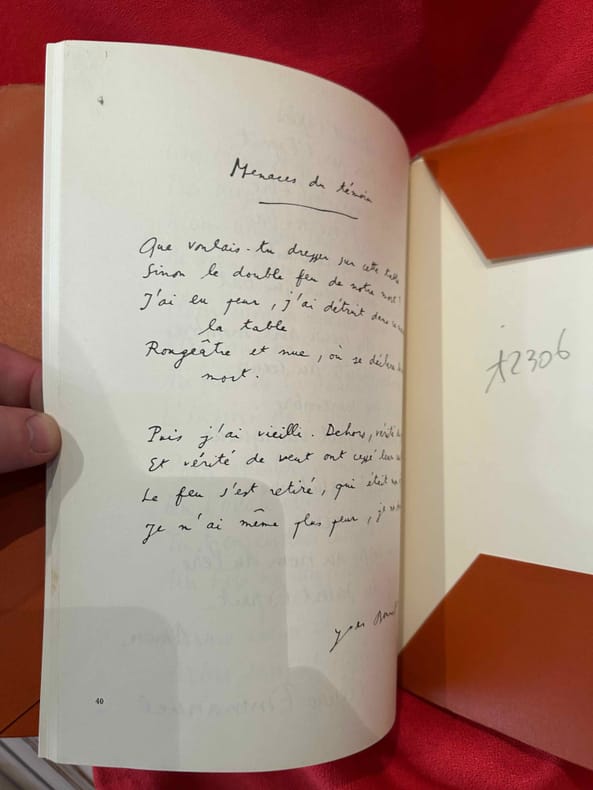 Menaces du témoin
Que voulais-tu dresser sur cette table
Sinon le double feu de notre mort ?
J'ai eu peur, j'ai détruit dans
la table
Rougeâtre et nue, où se
mort.
Puis j'ai vieilli. Dehors, vérité
Et vérité de vent ont cessé leur
Le feu s'est retiré, qui était
Je n'ai même plus peur, je
Yves
40
12306